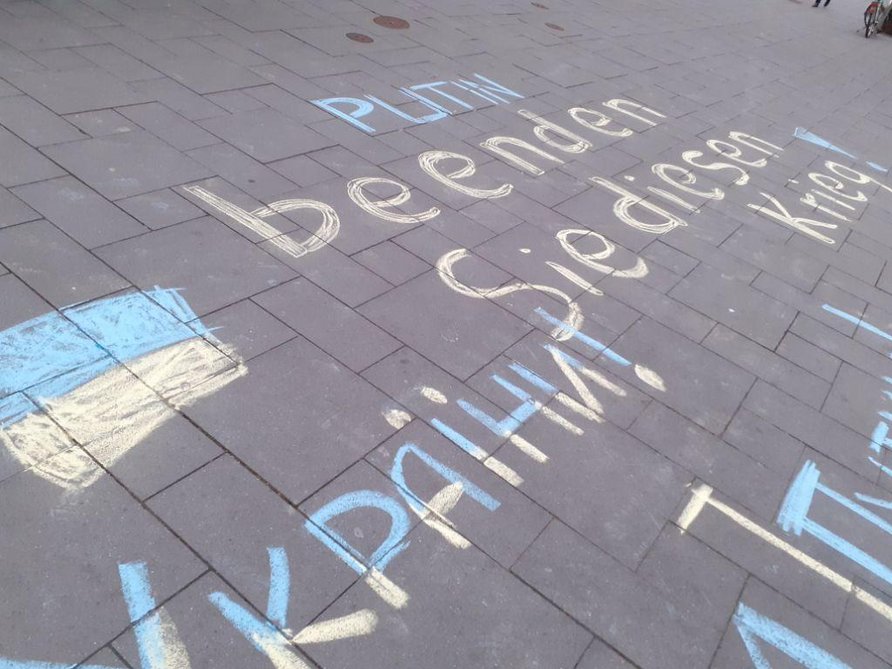 PUTIN
beenden
Sie diesen
Krieg!
УКРАЇНИ!